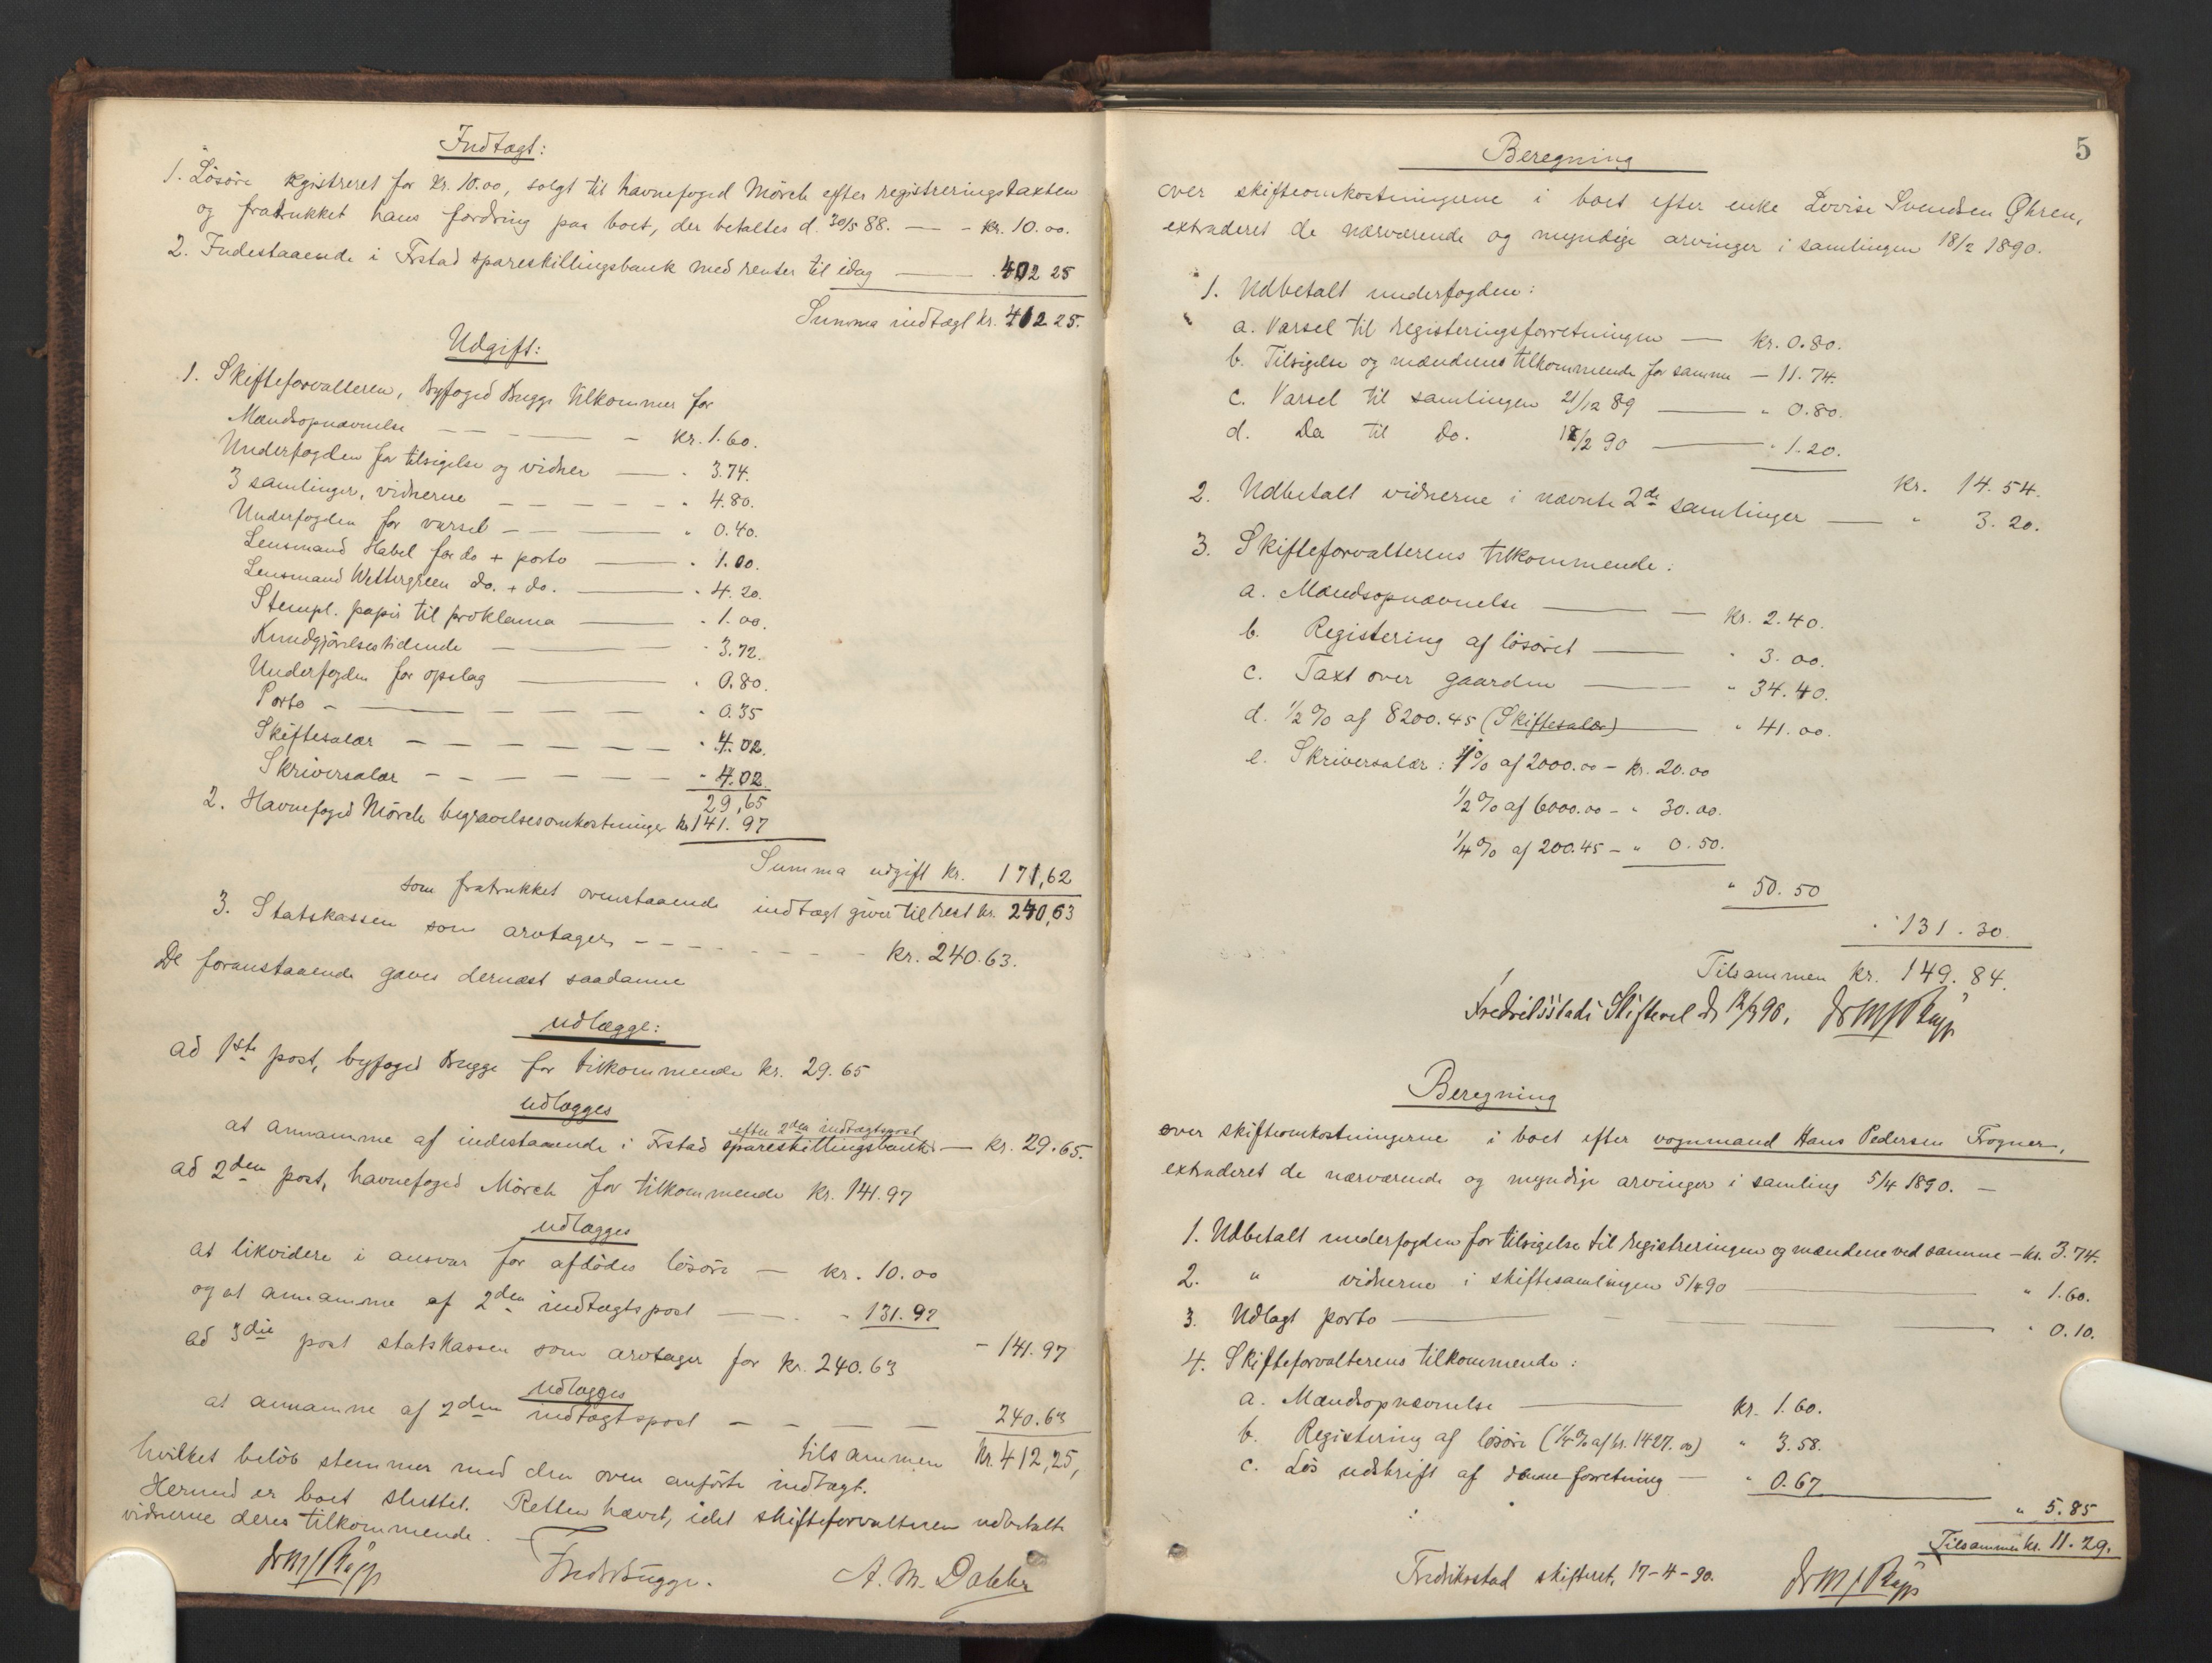 Indtægt:
1. Løsøre registreret for Kr. 10.00, solgt til havnefoged Mörch efter registreringstaxten
og fratrukket hans fordring paa boet, der betaltes d. 30/5 88. — - Kr. 10.00.
2. Indestaaende i Frstad spareskillingsbank med renter til idag — . 402 25
Summa indtægt Kr. 412 25.
Udgift:
1. Skifteforvalteren, Byfoged Bugge tilkommer for
Mændsopnævnelse — Kr. 1.60.
Underfogden for tilsigelse og vidner — " 3.74.
3 samlinger, vidnerne — " 4.80.
Underfogden for varsel — " 0.40.
Lensmand Habel for do + porto — " 1.00.
Lensmand Wettergreen do. + do. — " 4.20.
Stempl. papir til proklama — " 1.00.
Kundgjörelsestidende — " 3.72.
Underfogden for opslag — " 0.80.
Porto — " 0.35
Skiftesalær — " 4.02.
Skriversalær — " 4.02.
29,65
2. Havnefoged Mörch begravelsesomkostninger kr 141.97
Summa udgift Kr. 171,62
som fratrukket ovenstaaende indtægt giver til rest kr. 240,63
3. Statskassen som arvtager — Kr. 240.63.
De foranstaaende gaves dernæst saadanne
udlægge:
ad 1ste post, byfoged Bugge for tilkommende Kr. 29.65
udlægges
efter 2den indtægtspost
at annamme af indestaaende i Frstad spareskillingsbank — Kr. 29.65.
ad 2den post, havnefoged Mörch for tilkommende Kr. 141.97
udlægges
at likvidere i ansvar for afdödes lösöre — Kr. 10.00
og at annamme af 2den indtægtspost — " 131.97
- 141.97
ad 3die post statskassen som arvtager for Kr. 240.63
udlægges
at annamme af 2den indtægtspost — 240.63
tilsammen Kr. 412,25,
hvilket belöb stemmer med den oven anförte indtægt.
Hermed er boet sluttet. Retten hævet, idet skifteforvalteren udbetalte
vidnerne deres tilkommende.
Fredr Bugge. A. M. Dahler
5
Beregning
over skifteomkostningerne i boet efter enke Lovise Svendsen Øhren,
extraderet de nærværende og myndige arvinger i samlingen 18/2 1890.
1. Udbetalt underfogden:
a. Varsel til registeringsforretningen — Kr. 0.80.
b. Tilsigelse og mændenes tilkommende for samme — 11.74.
c. Varsel til samlingen 21/12 89 — " 0.80.
d. Do til do. 18/2 90 — " 1.20.
Kr. 14.54.
2. Udbetalt vidnerne i nævnte 2de samlinger — " 3.20.
3. Skifteforvalterens tilkommende:
a. Mændsopnævnelse — Kr. 2.40.
b. Registering af lösöret — " 3.00.
c. Taxt over gaarden — " 34.40.
d. 1/2 % af 8200.45 (Skiftesalær) — " 41.00.
e. Skriversalær: 1% af 2000.00 — Kr. 20.00
1/2 % af 6000.00 — " 30.00.
1/4 % af 200.45 — " 0.50.
" 50.50
" 131.30
Tilsammen Kr. 149.84.
Fredriksstads Skifteret
Beregning
over skifteomkostningerne i boet efter vognmand Hans Pedersen Trogner,
extraderet de nærværende og myndige arvinger i samling 5/4 1890. —
1. Udbetalt underfogden for tilsigelse til registreringen og mændene ved samme — Kr. 3.74.
2. " vidnerne i skiftesamlingen 5/4 90 — " 1.60.
3. Udlagt porto — " 0.10.
4. Skifteforvalterens tilkommende:
a. Mændsopnævnelse — Kr. 1.60.
b. Registering af lösöre (1/4 % af kr. 1427.00) " 3.58.
c. Lös udskrift af denne forretning — " 0.67
" 5.85
Tilsammen kr. 11.29.
Fredrikstad skifteret, 17-4-90.